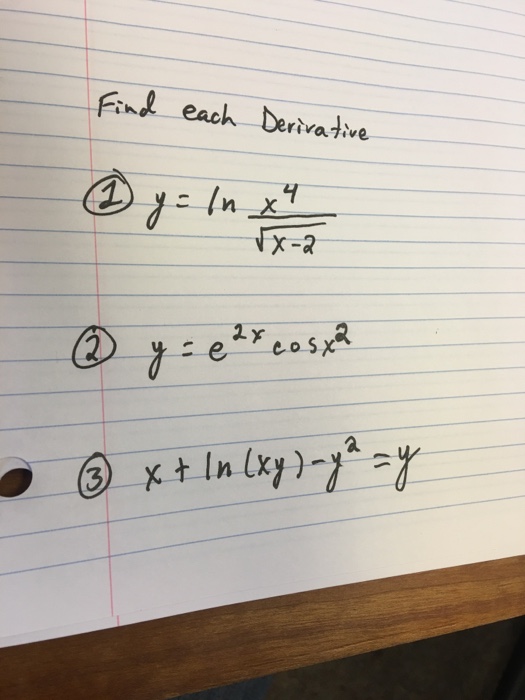 Find each Derivative
① y = ln x⁴/√(x-2)
② y = e²ˣ cosx²
③ x + ln(xy) - y² = y